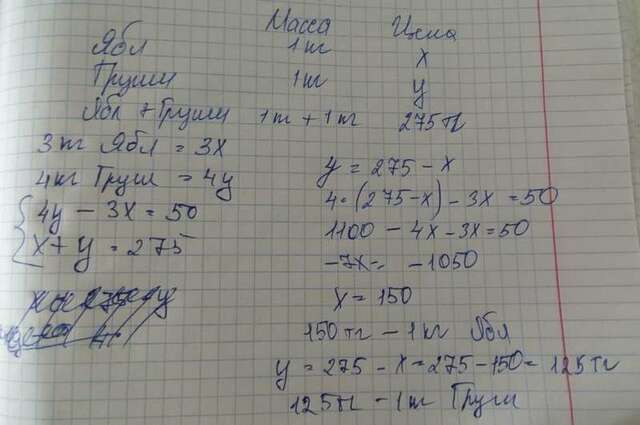 Масса Цена
Ябл 1 кг x
Груши 1 кг y
Ябл + Груши 1 кг + 1 кг 275 тг
3 кг Ябл = 3x
4 кг Груш = 4y
4y - 3x = 50
x + y = 275
y = 275 - x
4·(275-x) - 3x = 50
1100 - 4x - 3x = 50
-7x = -1050
x = 150
150 тг - 1 кг Ябл
y = 275 - x = 275 - 150 = 125 тг
125 тг - 1 кг Груши